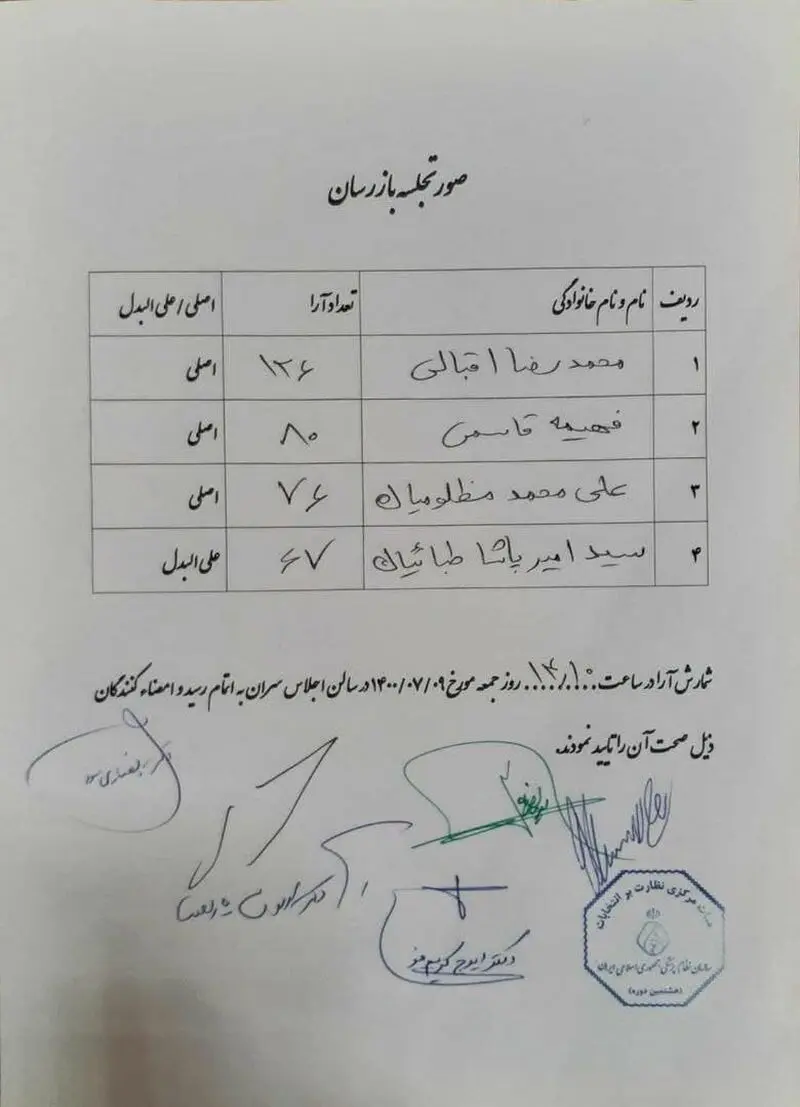 صورتجلسه بازرسان
ردیف نام و نام خانوادگی تعداد آرا اصلی / علی البدل
۱ محمدرضا اقبالی ۱۲۶ اصلی
۲ فهیمه قاسمی ۸۰ اصلی
۳ علی محمد مظلومیان ۷۶ اصلی
۴ سید امیر پاشا طبائیان ۶۷ علی البدل
شمارش آرا در ساعت ۱۴/۱۰ روز جمعه مورخ ۱۴۰۰/۰۷/۰۹ در سالن اجلاس سران به اتمام رسید و امضاء کنندگان
ذیل صحت آن را تایید نمودند.
دکتر
دکتر
دکتر ایرج
هیات مرکزی نظارت بر انتخابات
سازمان نظام پزشکی جمهوری اسلامی ایران
(هشتمین دوره)